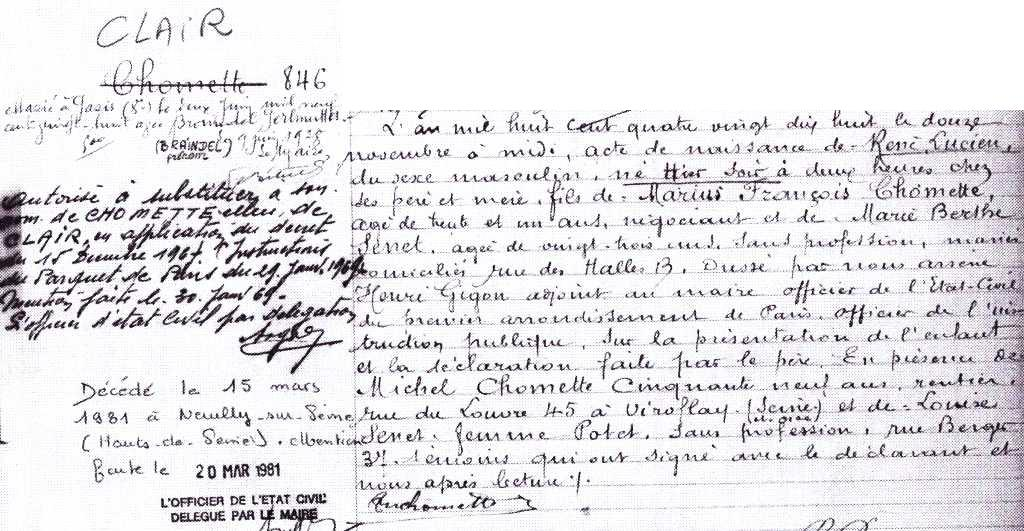 CLAIR
Chomette 846
Marié à Paris (5e) le deux Juin mil neuf
cent vingt-huit avec Bronia
(BRAINDEL)
prénom
Autorisé à substituer à son
nom de CHOMETTE celui de
CLAIR, en application du décret
du 15 Décembre Instructions
du Parquet de Paris du 29 Janv. 1969
Mention faite le 30 Janv 69.
L'officier d'état civil par délégation
Décédé le 15 mars
1981 à Neuilly-sur-Seine
(Hauts-de-Seine). Mention
faite le 20 MAR 1981
L'OFFICIER DE L'ETAT CIVIL
DELEGUE PAR LE MAIRE
L'an mil huit cent quatre vingt dix huit le douze
novembre à midi, acte de naissance de René Lucien,
du sexe masculin, né Hier Soir à deux heures chez
ses père et mère, fils de Marius François Chomette,
agé de trente et un ans, négociant et de Marie Berthe
Senet, agée de vingt-trois ans, sans profession, mariés
domiciliés rue des Halles 13. Dressé par nous Arsène
Henri Gigon adjoint au maire officier de l'Etat-Civil
du premier arrondissement de Paris, officier de l'ins
truction publique, sur la présentation de l'enfant
et la déclaration faite par le père. En présence de
Michel Chomette Cinquante neuf ans, rentier,
rue du Louvre 45 à Viroflay (Seine et Oise) et de Louise
Senet, femme Potet, sans profession, rue Berger
37. témoins qui ont signé avec le déclarant et
nous après lecture ./.
Chomette